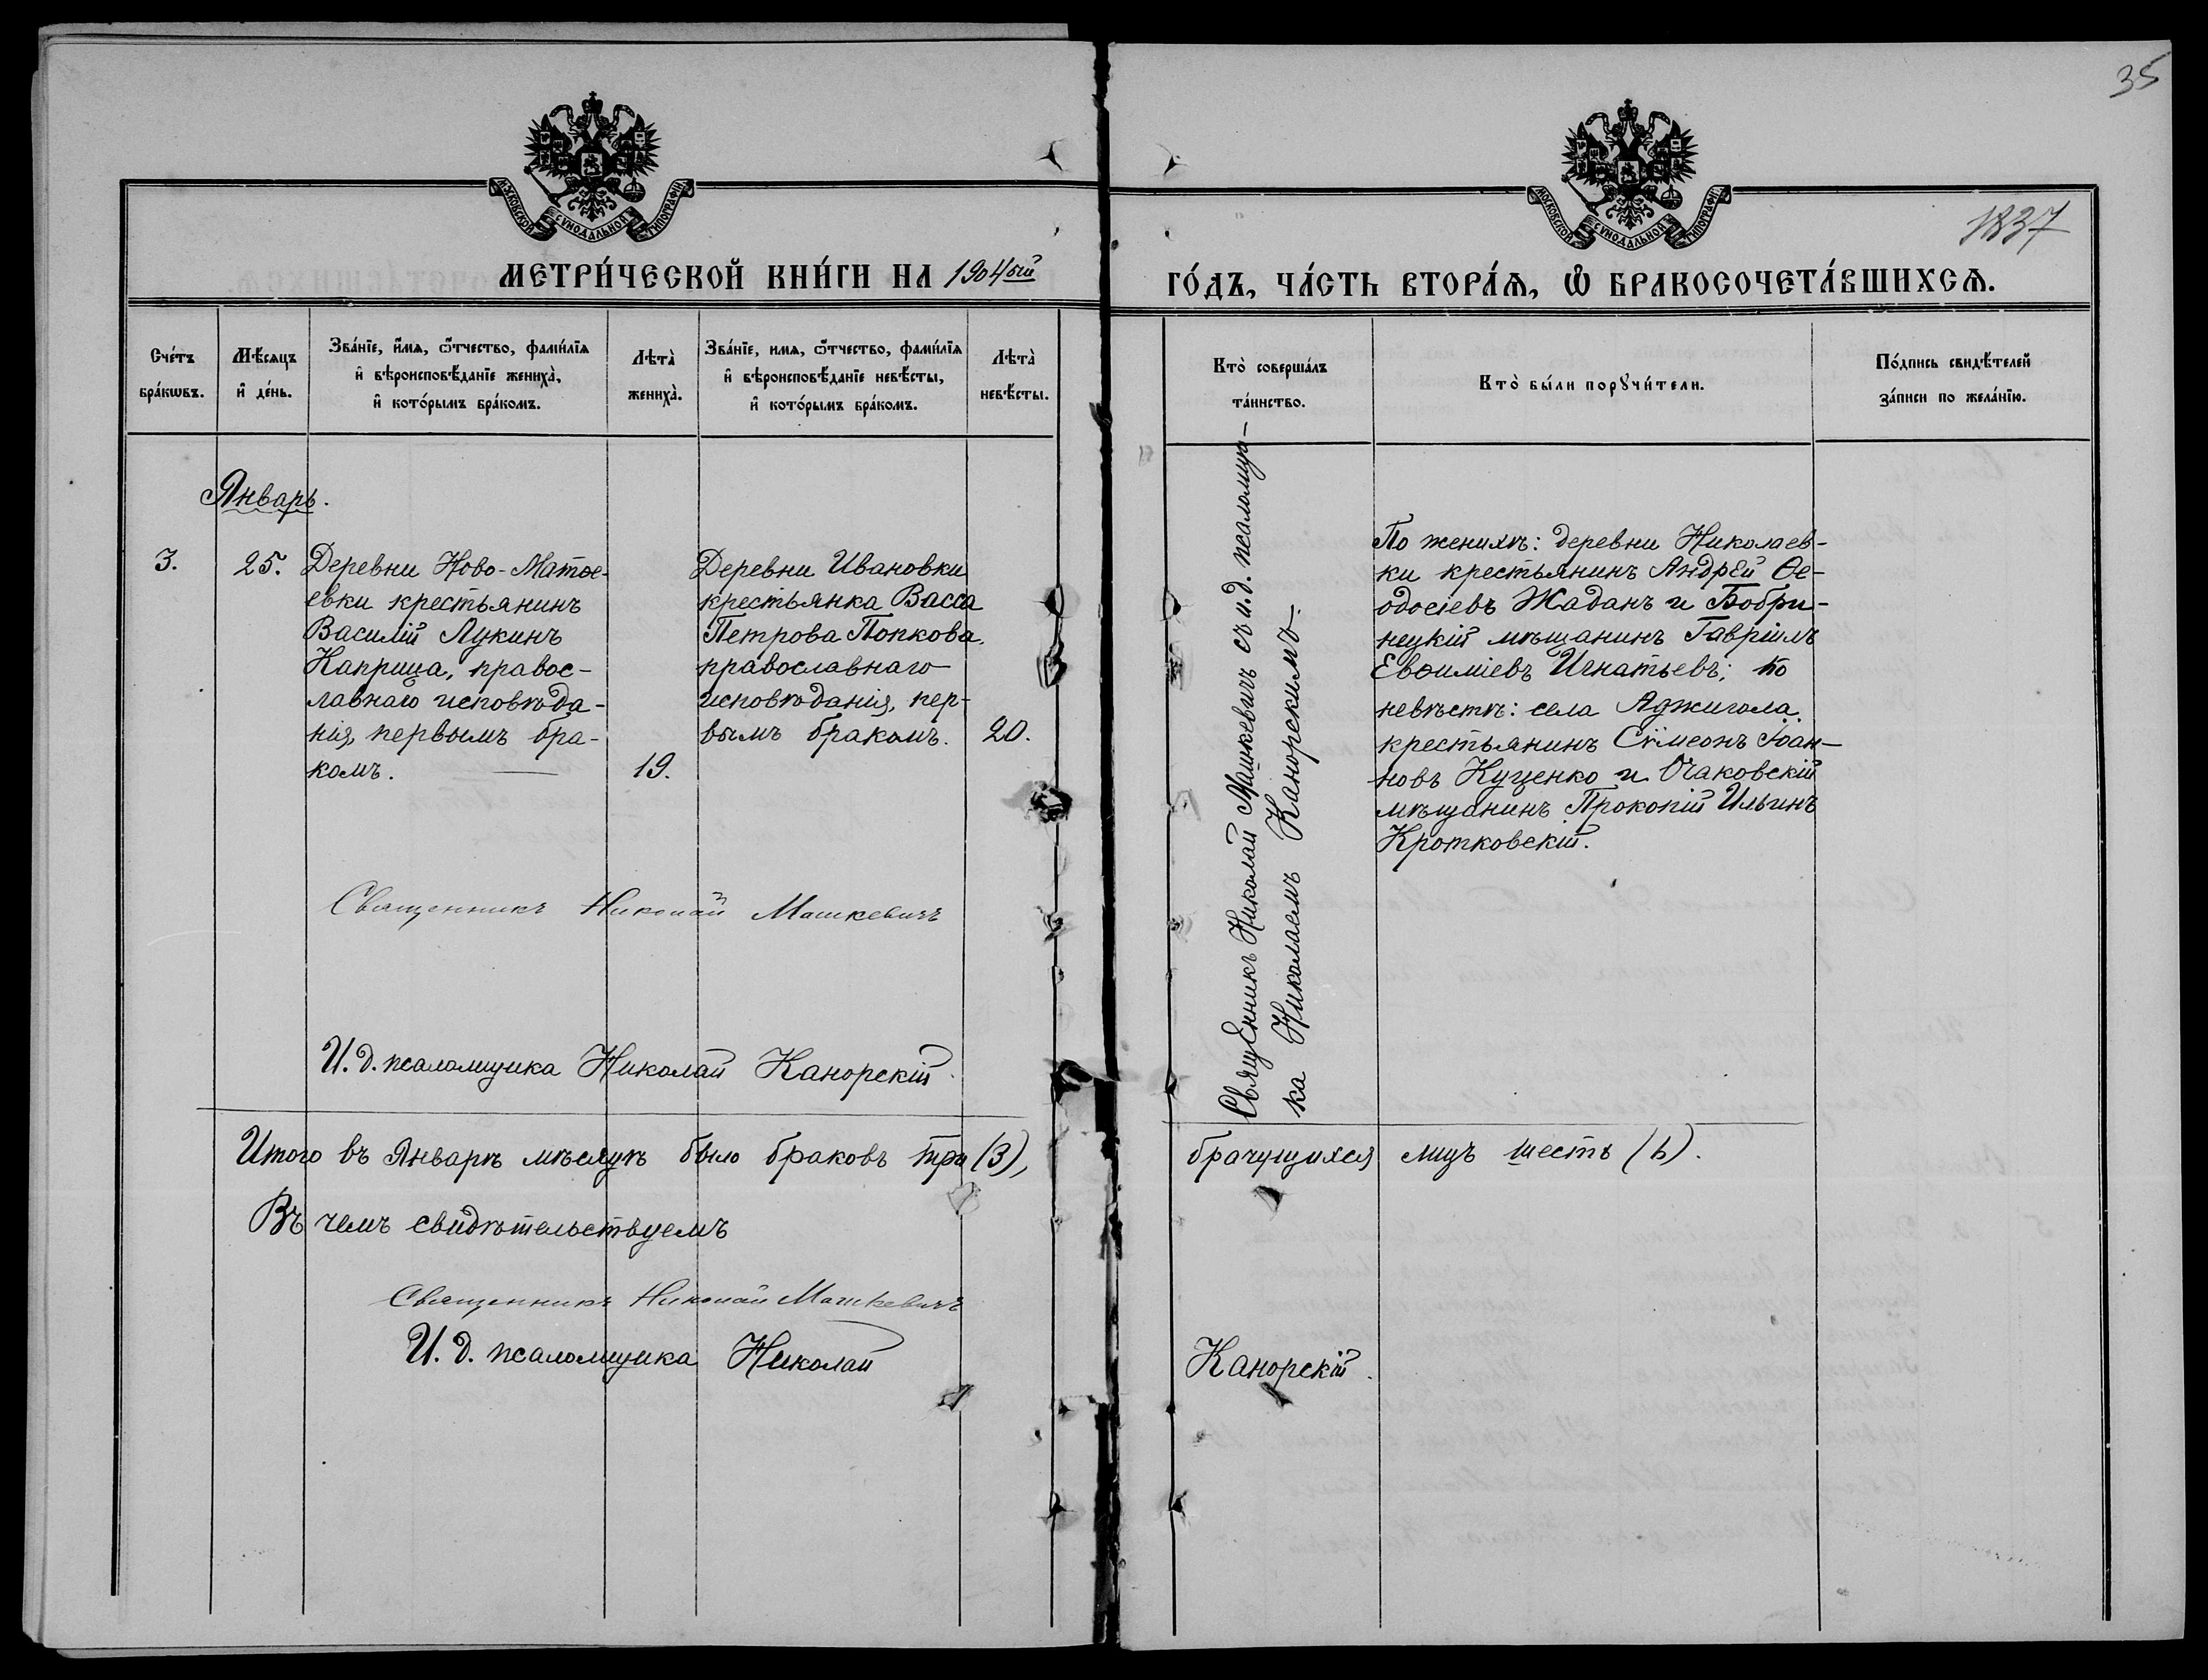 35
МОСКОВСКОЙ СѴНОДАЛЬНОЙ ТИПОГРАФІИ
МОСКОВСКОЙ СѴНОДАЛЬНОЙ ТИПОГРАФІИ
1837
МЕТРИ́ЧЕСКОЙ КНИ́ГИ НА 1904ый
ГО́ДЪ, ЧА́СТЬ ВТОРА́Ѧ, Ѽ БРАКОСОЧЕТА́ВШИХСѦ.
Сче́тъ бра́кѡвъ.
Мѣ́сяцъ и҆ де́нь.
Зва́нїе, и҆́мѧ, ѻ҆́тчество, фамѝлїѧ
и҆ вѣроисповѣ́данїе жениха̀,
и҆ кото́рымъ бра́комъ.
Лѣта̀ жениха̀.
Зва́нїе, имѧ, ѻ҆́тчество, фами́лїѧ
и҆ вѣроисповѣ́данїе невѣ́сты,
и҆ кото́рымъ бра́комъ.
Лѣта̀ невѣ́сты.
Кто̀ соверша́лъ та́инство.
Кто̀ бы́ли порꙋчи́тели.
По́дпись свидѣ́телей за́писи по жела́нїю.
Январь.
3.
25.
Деревни Ново-Матве-
евки крестьянинъ
Василій Лукинъ
Каприца, правос-
лавнаго исповѣда-
нія, первымъ бра-
комъ.
19.
Деревни Ивановки
крестьянка Васса
Петрова Попкова,
православнаго
исповѣданія, пер-
вымъ бракомъ.
20.
Священникъ Николай Машкевичъ съ и.д. псаломщи-
ка Николаемъ Канорскимъ.
По женихѣ: деревни Николаев-
ки крестьянинъ Андрей Ѳе-
одосіевъ Жаданъ и Бобри-
нецкій мѣщанинъ Гавріилъ
Евѳиміевъ Игнатьевъ; по
невѣстѣ: села Аджигола
крестьянинъ Сѵмеонъ Іоан-
новъ Куценко и Очаковскій
мѣщанинъ Прокопій Ильинъ
Кротковскій.
Священникъ Николай Машкевичъ
И. д. псаломщика Николай Канорскій.
Итого въ Январѣ мѣсяцѣ было браковъ три (3), брачущихся лицъ шесть (6).
Въ чемъ свидѣтельствуемъ
Священникъ Николай Машкевичъ
И. д. псаломщика Николай Канорскій.